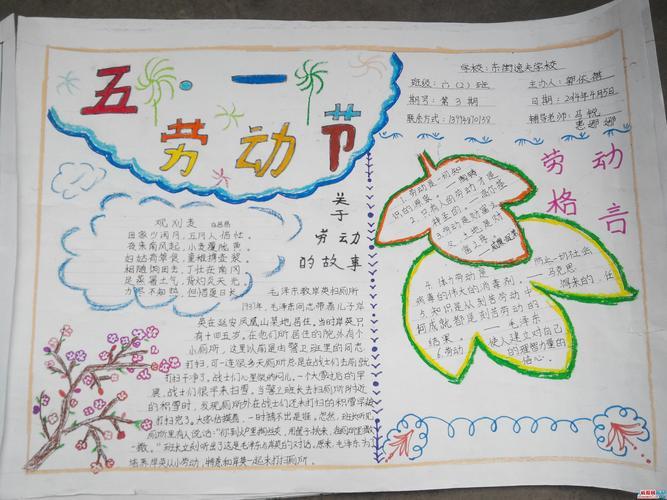 五·一
劳动节
学校:东街逸夫学校
班级:六(2)班
主办人:郭依琪
期号:第3期
日期:2014年4月5日
联系方式:13994870138
辅导老师:马悦
惠娜娜
观刈麦
白居易
田家少闲月,五月人倍忙。
夜来南风起,小麦覆陇黄。
妇姑荷箪食,童稚携壶浆
相随饷田去,丁壮在南冈
足蒸暑土气,背灼炎天光。
力尽不知热,但惜夏日长
关于
劳动
的故事
毛泽东教岸英扫厕所
毛泽东同志带着儿子岸
英在延安凤凰山某地居住。当时岸英只
有十四五岁。在他们所居住的院外有个
小厕所,这里以前是由警卫班里的同志
打扫,可一连很多天厕所总是在战士们去前就
打扫干净了。战士们心里很纳闷儿。一个大雪过后的早
晨,战士们很早来扫雪。当警卫班长去扫厕所附近
的积雪时,发现厕所外在战士们还未打扫的积雪早被
打扫完了。大家估摸着,一时猜不出是谁。忽然,班长听见
厕所里有人说话:
班长立刻听出了这是毛泽东与岸英的对话。原来,毛泽东为了
培养岸英从小劳动,特意和岸英一起来打扫厕所。
劳动
格言
1.劳动是一切知
识的源泉。——陶铸
2.只有人的劳动才是
神圣的。——高尔基
3.劳动是财富之
父,土地是财
富之母。
4.体力劳动是
防止一切社会
病毒的伟大的消毒剂。——马克思
5.知识是从刻苦劳动中
得来的,任
何成就都是刻苦劳动的
结果。——毛泽东
6.劳动
使人建立对自己
的理智力量的
信心。